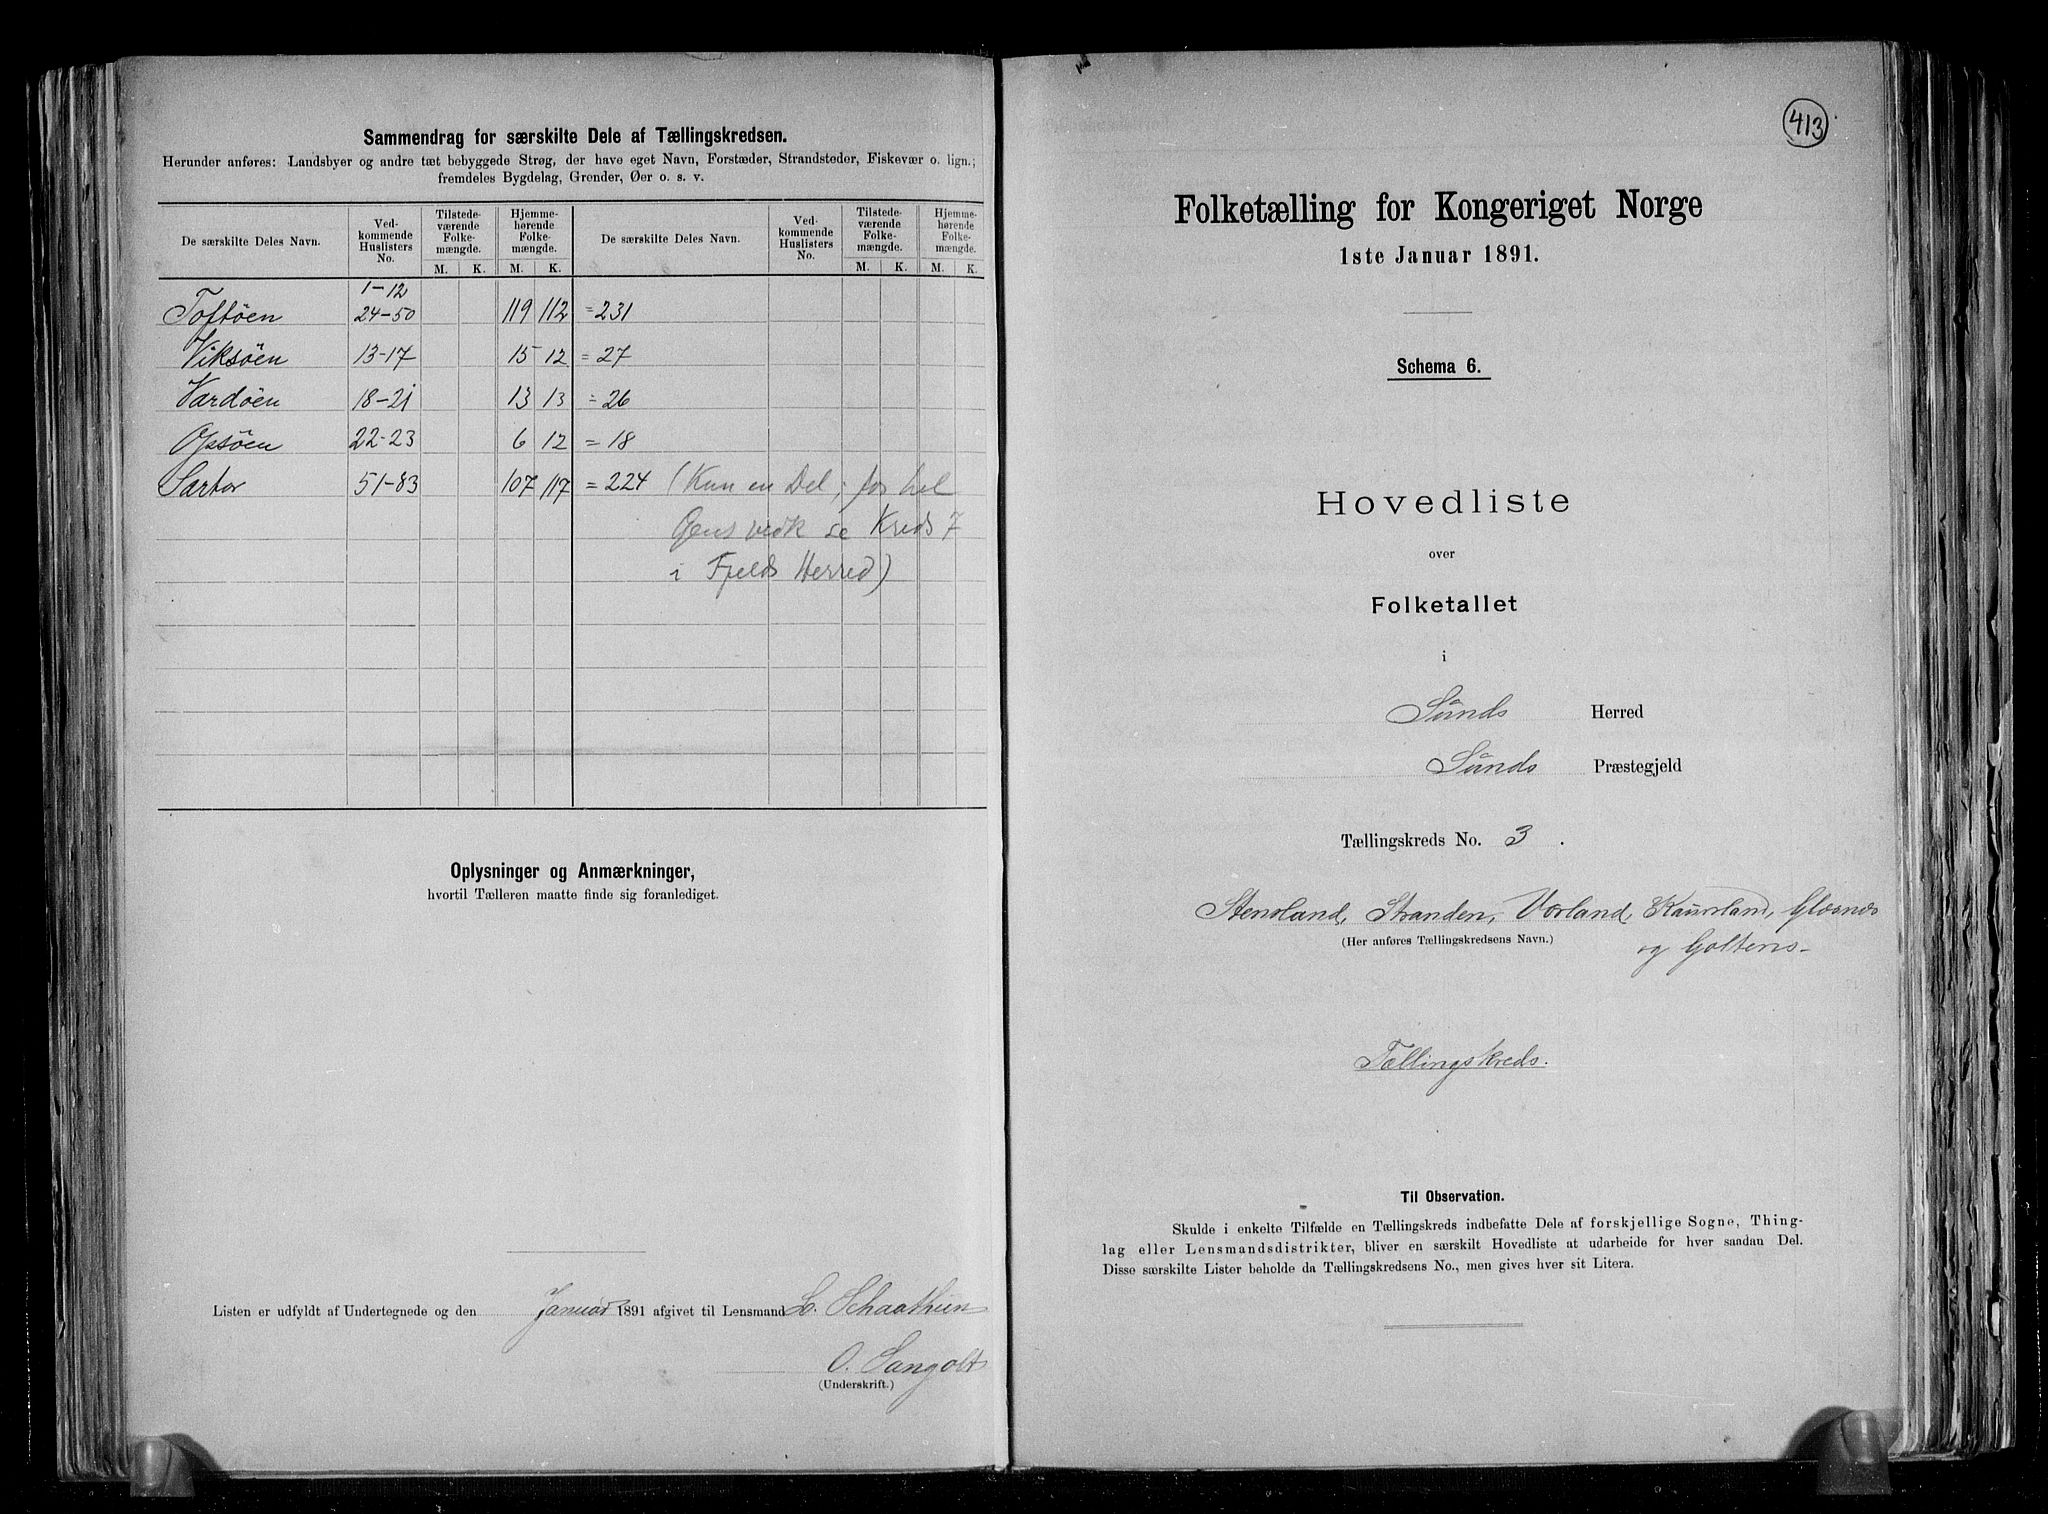 Sammendrag for særskilte Dele af Tællingskredsen.
Herunder anføres: Landsbyer og andre tæt bebyggede Strøg, der have eget Navn, Forstæder, Strandsteder, Fiskevær o. lign.;
fremdeles Bygdelag, Grender, Øer o. s. v.
De særskilte Deles Navn. Vedkommende Huslisters No. Tilstedeværende Folkemængde. Hjemmehørende Folkemængde. De særskilte Deles Navn. Vedkommende Huslisters No. Tilstedeværende Folkemængde. Hjemmehørende Folkemængde.
M. K. M. K. M. K. M. K.
1-12
Toftöen 24-50 119 112 = 231
Viksöen 13-17 15 12 = 27
Vardöen 18-21 13 13 = 26
Opsöen 22-23 6 12 = 18
Sartor 51-83 107 117 = 224 (Kun en Del; for hel
Øens vedk se Kreds 7
i Fjelds Herred)
Oplysninger og Anmærkninger,
hvortil Tælleren maatte finde sig foranlediget.
Listen er udfyldt af Undertegnede og den Januar 1891 afgivet til Lensmand L. Schaathun
O. Sangolt
(Underskrift.)
413
Folketælling for Kongeriget Norge
1ste Januar 1891.
Schema 6.
Hovedliste
over
Folketallet
i
Sunds Herred
Sunds Præstegjeld
Tællingskreds No. 3.
Stensland, Stranden, Vorland, Kausland, Glesnes
(Her anføres Tællingskredsens Navn.)
og Goltens-
Tællingskreds.
Til Observation.
Skulde i enkelte Tilfælde en Tællingskreds indbefatte Dele af forskjellige Sogne, Thing-
lag eller Lensmandsdistrikter, bliver en særskilt Hovedliste at udarbeide for hver saadan Del.
Disse særskilte Lister beholde da Tællingskredsens No., men gives hver sit Litera.